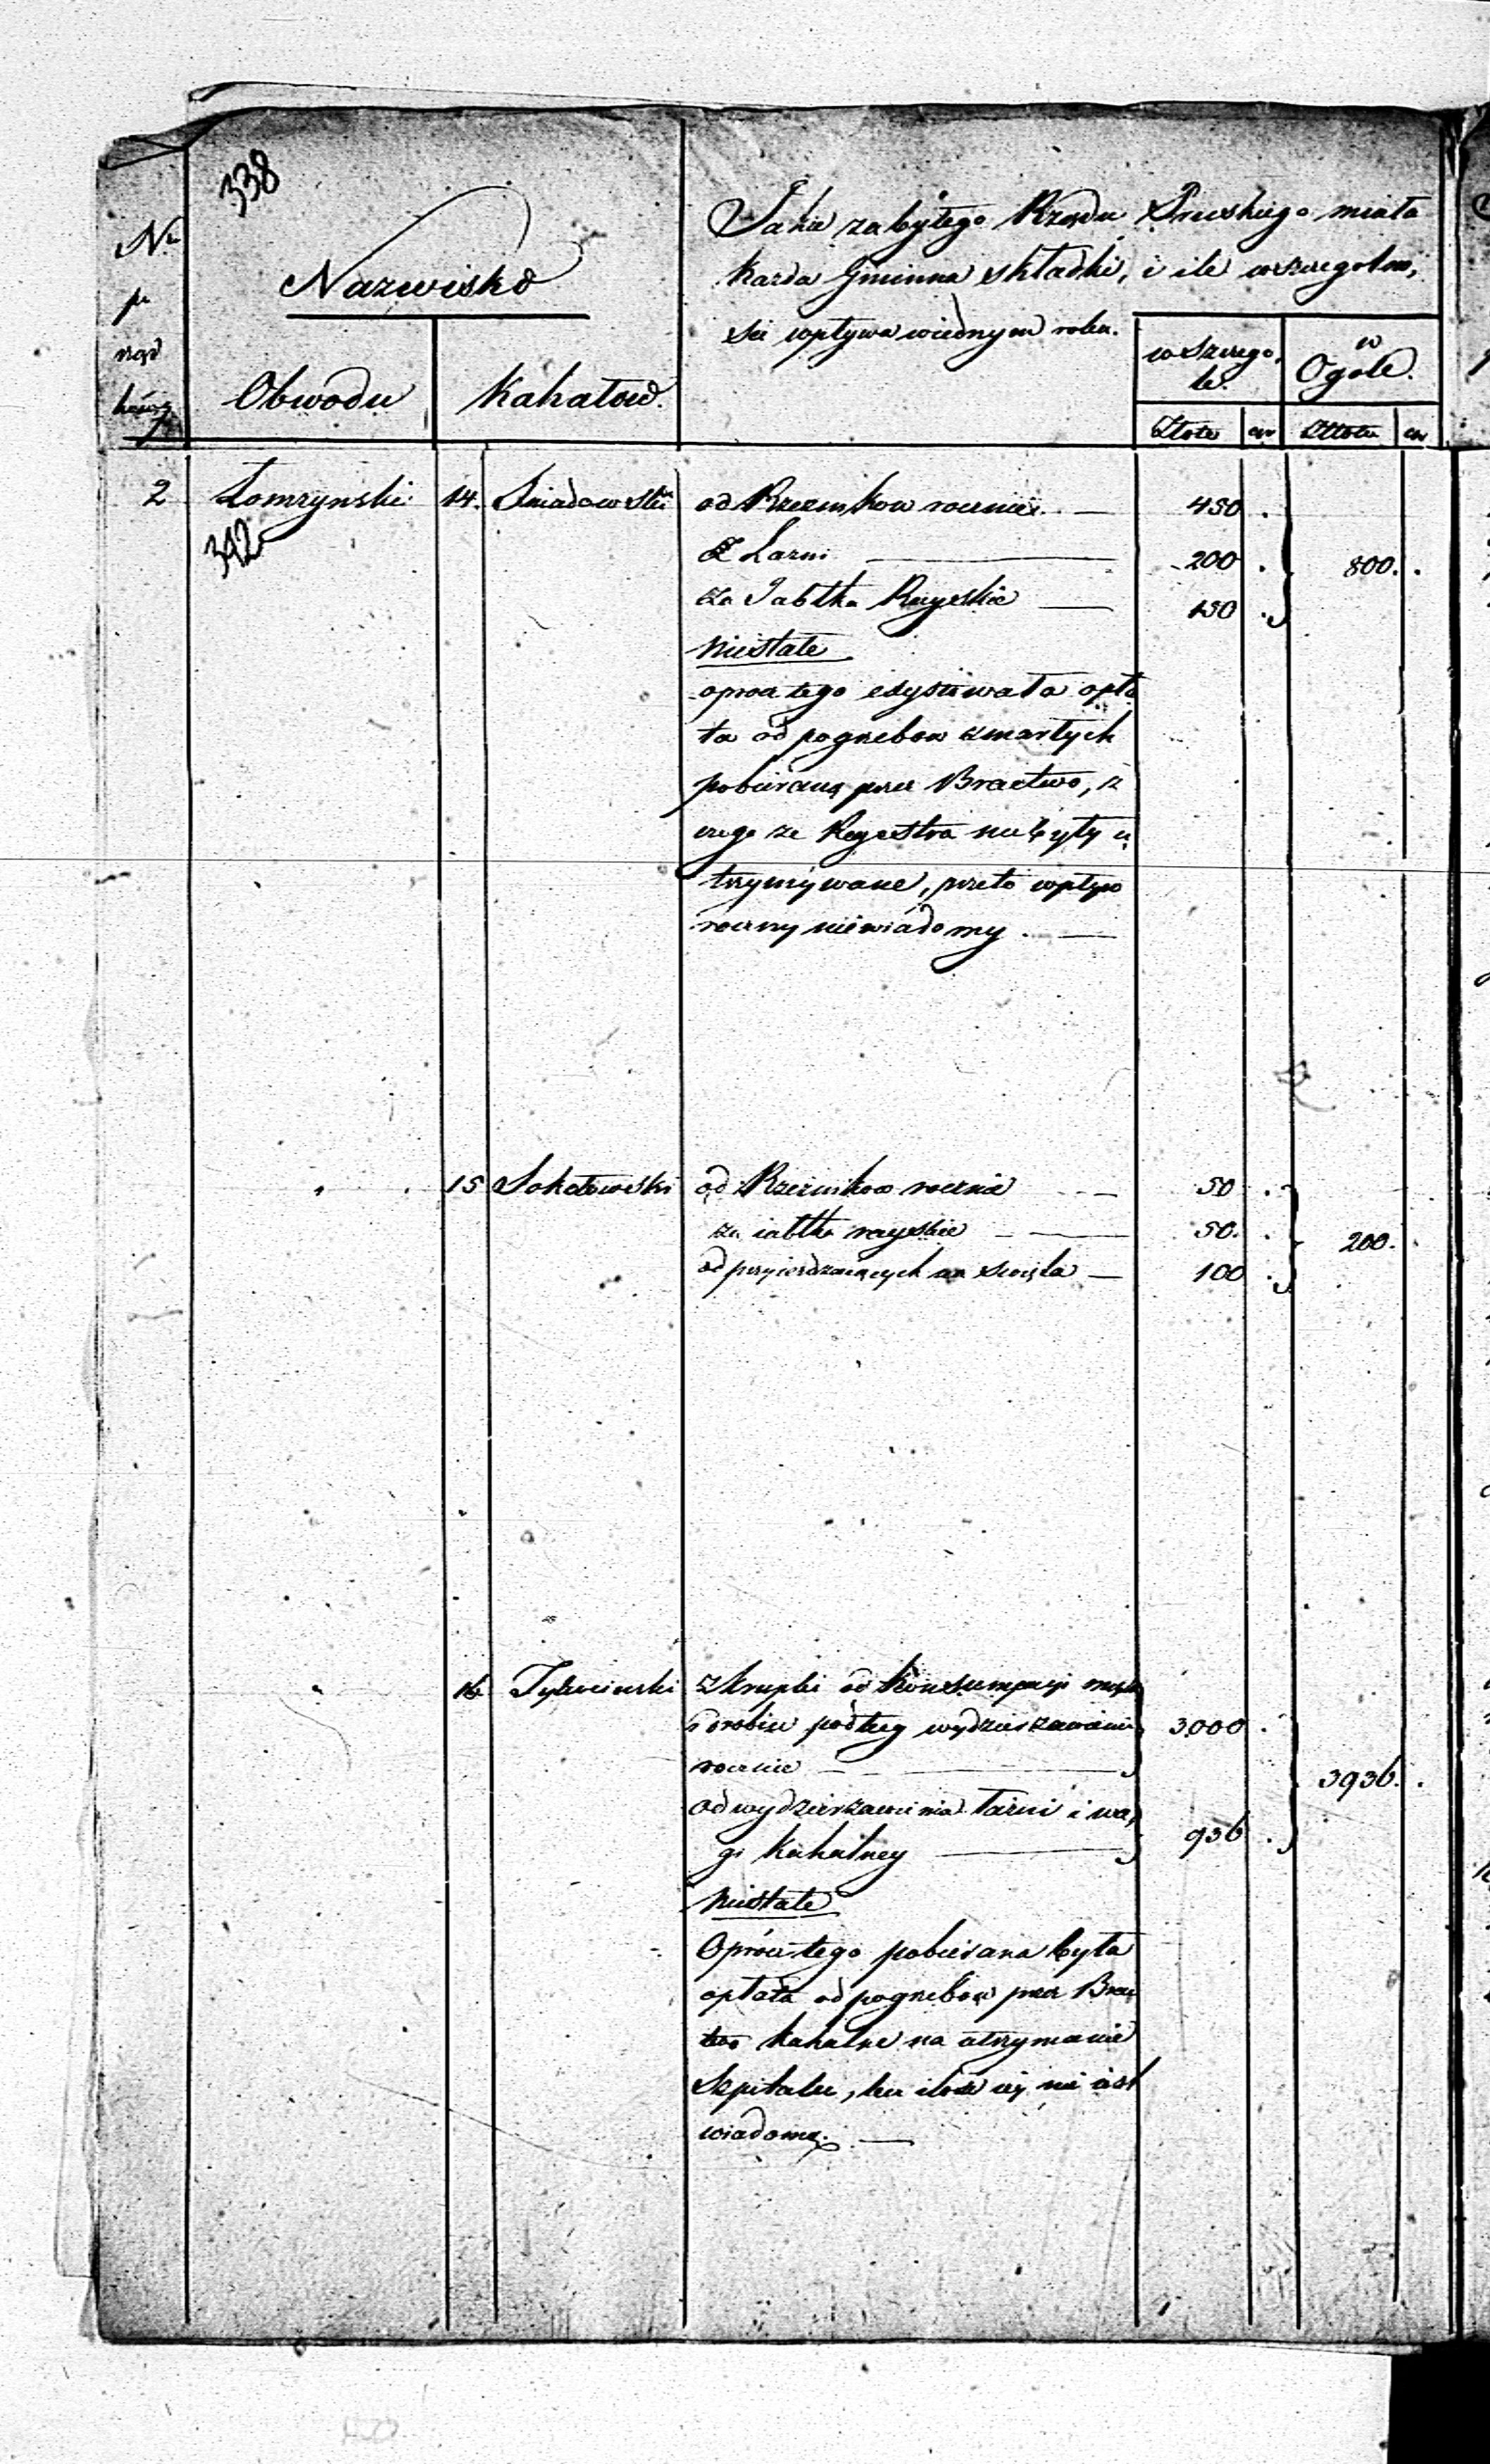 338
Nr
p
rząd
kowy
Nazwisko
Obwodu
Kahałow.
Jakie za byłego Rządu Pruskiego miała
każda Gminna składki, i ile wszczegolno,
sci wpływa wiednym roku.
w Szczego,
le.
w
Ogole.
Złote
gr
Złote
gr
2 Łomzynski 14. Sniadowski od Rzeznikow rocznie. — 450 .
342
Z Łazni — 200 . 800. .
za Jabłka Rayskie — 150 .
Niestałe
oprocz tego exystowała opła
ta od pogrzebow zmarłych
pobierana przez Bractwo, z
czego ze Regestra niebyły u,
trzymywane, przeto wpływ
roczny niewiadomy . —
15 Sokołowski od Rzeznikow rocznie — 50 .
za iabłka rayskie — 50. . 200.
od przyierdzaiących na swięta — 100 .
16 Tykocinski z krupki od konsumpcyi mięsa
i drobiu podług wydzierzawienia 3000 .
rocznie — 3936. .
od wydzierzawienia Łazni i wa,
gi kahalney — 936 .
Niestałe
Oprócz tego pobierana była
opłata od pogrzebow przez Brac
two kahalne na utrzymanie
Szpitalu, lecz ilość iey nie iest
wiadoma. —